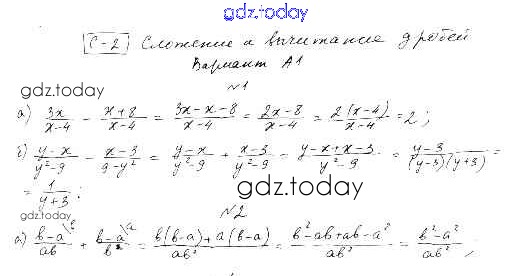 gdz.today
С-2 Сложение и вычитание дробей
Вариант А1
№1
gdz.today
а) 3x/(x-4) - (x+8)/(x-4) = (3x-x-8)/(x-4) = (2x-8)/(x-4) = 2(x-4)/(x-4) = 2;
б) (y-x)/(y²-9) - (x-3)/(9-y²) = (y-x)/(y²-9) + (x-3)/(y²-9) = (y-x+x-3)/(y²-9) = (y-3)/((y-3)(y+3)) =
gdz.today
= 1/(y+3);
gdz.today
№2
а) (b-a)/ab \b + (b-a)/b² \a = (b(b-a)+a(b-a))/ab² = (b²-ab+ab-a²)/ab² = (b²-a²)/ab²;